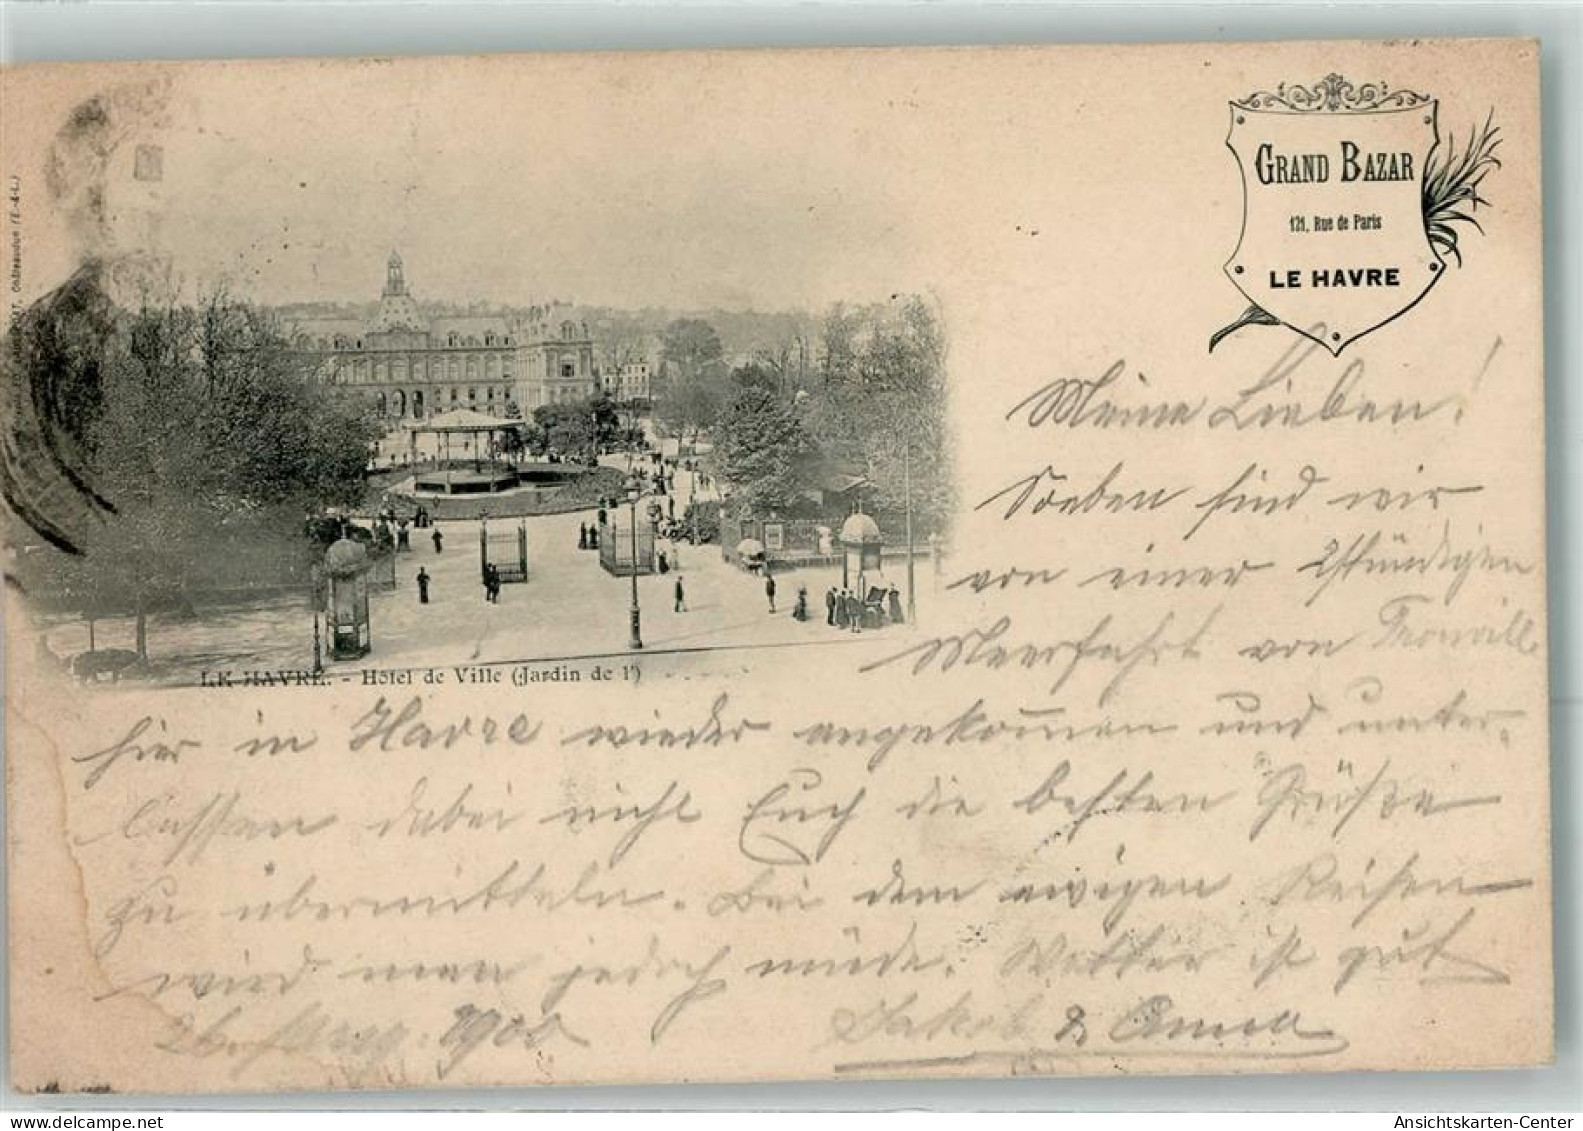 GRAND BAZAR
121, Rue de Paris
LE HAVRE
Châteaudun (E.-&-L.)
LE HAVRE. - Hôtel de Ville (Jardin de l')
Meine Lieben!
Soeben sind wir
von einer 2stündigen
Meerfahrt von Trouville
hier in Havre wieder angekommen und unter-
lassen dabei nicht Euch die besten Grüße
zu übermitteln. Bei dem ewigen Reisen
wird man jedoch müde. Wetter ist gut
26. Aug. 1900 Jakob & Anna
www.delcampe.net
Ansichtskarten-Center